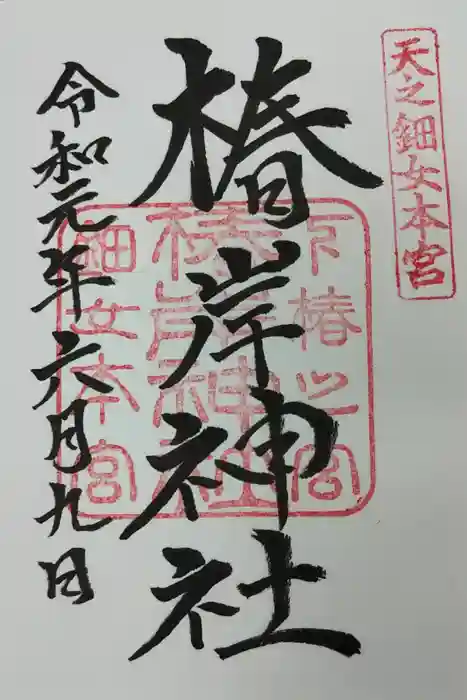 天之鈿女本宮
椿岸神社
令和元年六月九日
下椿之宮
椿岸神社
鈿女本宮